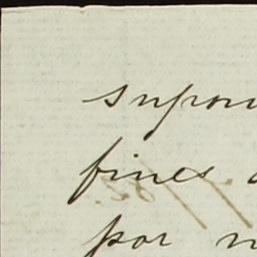 supon
fines
por